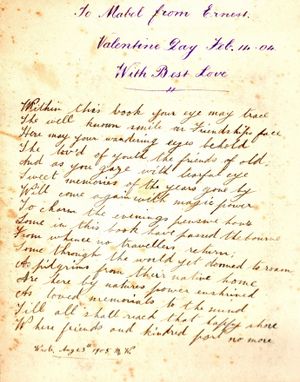 To Mabel from Ernest.
Valentine Day Feb. 14-04.
With Best Love
Within this book your eye may trace
The well known smile in Friendships face
Here may your wandering eyes behold
The lov'd of youth the friends of old.
And as you gaze with tearful eye
Sweet memories of the years gone by
Will come again with magic power
To charm the evenings pensive hour
Some in this book have passed the bourne
From whence no travellers return;
Some through the world yet doomed to roam
As pilgrims from their native home
Are here by natures power enshrined
As loved memorials to the mind
Till all shall reach that happy shore
Where friends and kindred part no more
Aug 3rd 1905